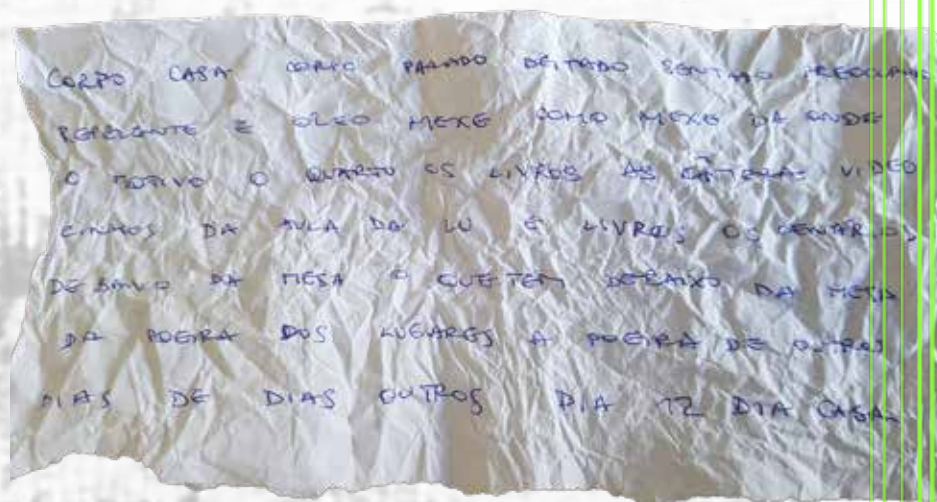 CORPO CASA CORPO PARADO DEITADO SENTADO
REPELENTE E MEXE COMO MEXE DA ONDE
O MOTIVO O QUARTO OS LIVROS AS VIDEO
DA AULA DA LU E LIVROS OS
DEBAIXO DA MESA O QUE TEM DEBAIXO DA MESA
DA POEIRA DOS LUGARES A POEIRA DE OUTROS
DIAS DE DIAS OUTROS DIA 12 DIA CASA